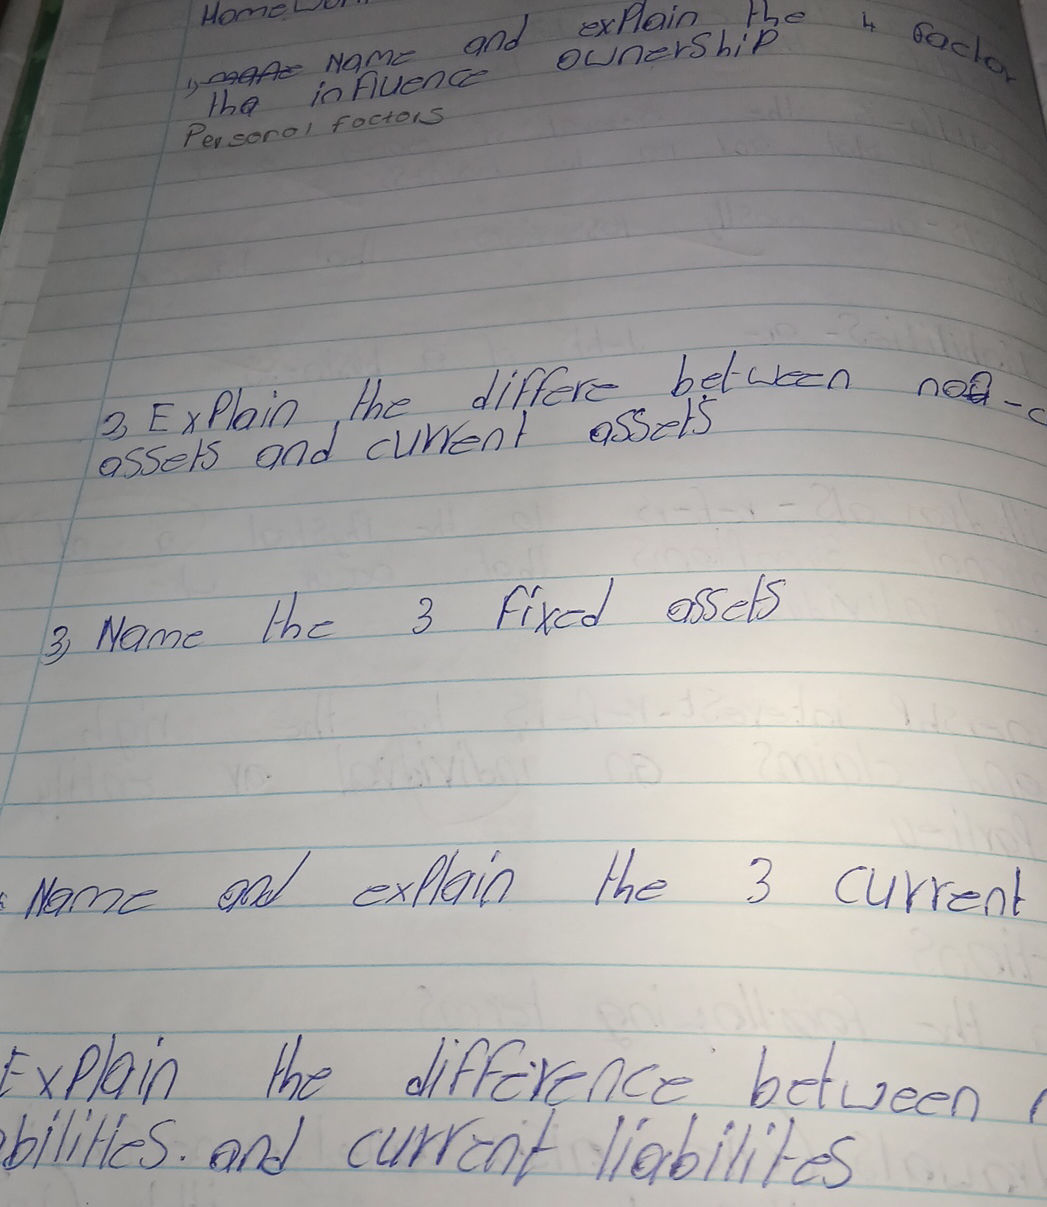 1, Name and explain the 4 factor
the influence ownership
Personal factors
2, Explain the differe between
assets and current assets
3, Name the 3 fixed assets
Name and explain the 3 current
Explain the difference between
bilities. and current liabilites